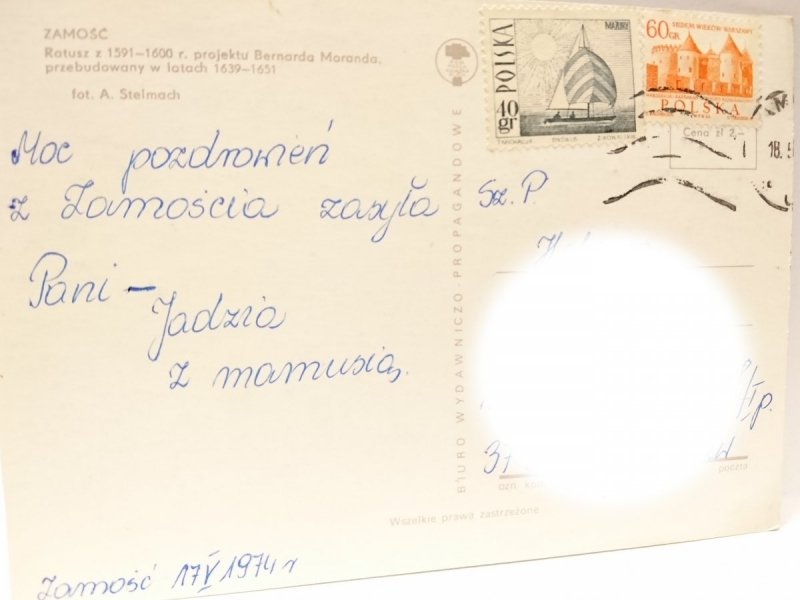 ZAMOŚĆ
Ratusz z 1591—1600 r. projektu Bernarda Moranda,
przebudowany w latach 1639—1651
fot. A. Stelmach
Moc pozdrowień
z Zamościa zasyła
Pani —
Jadzia
z mamusią.
Zamość 17 V 1974 r
BIURO WYDAWNICZO-PROPAGANDOWE
POLSKA
MAZURY
40 gr
60 GR
SIEDEM WIEKÓW WARSZAWY
POLSKA
Cena zł 2,—
18.5
Sz. P.
I p.
37
poczta
Wszelkie prawa zastrzeżone